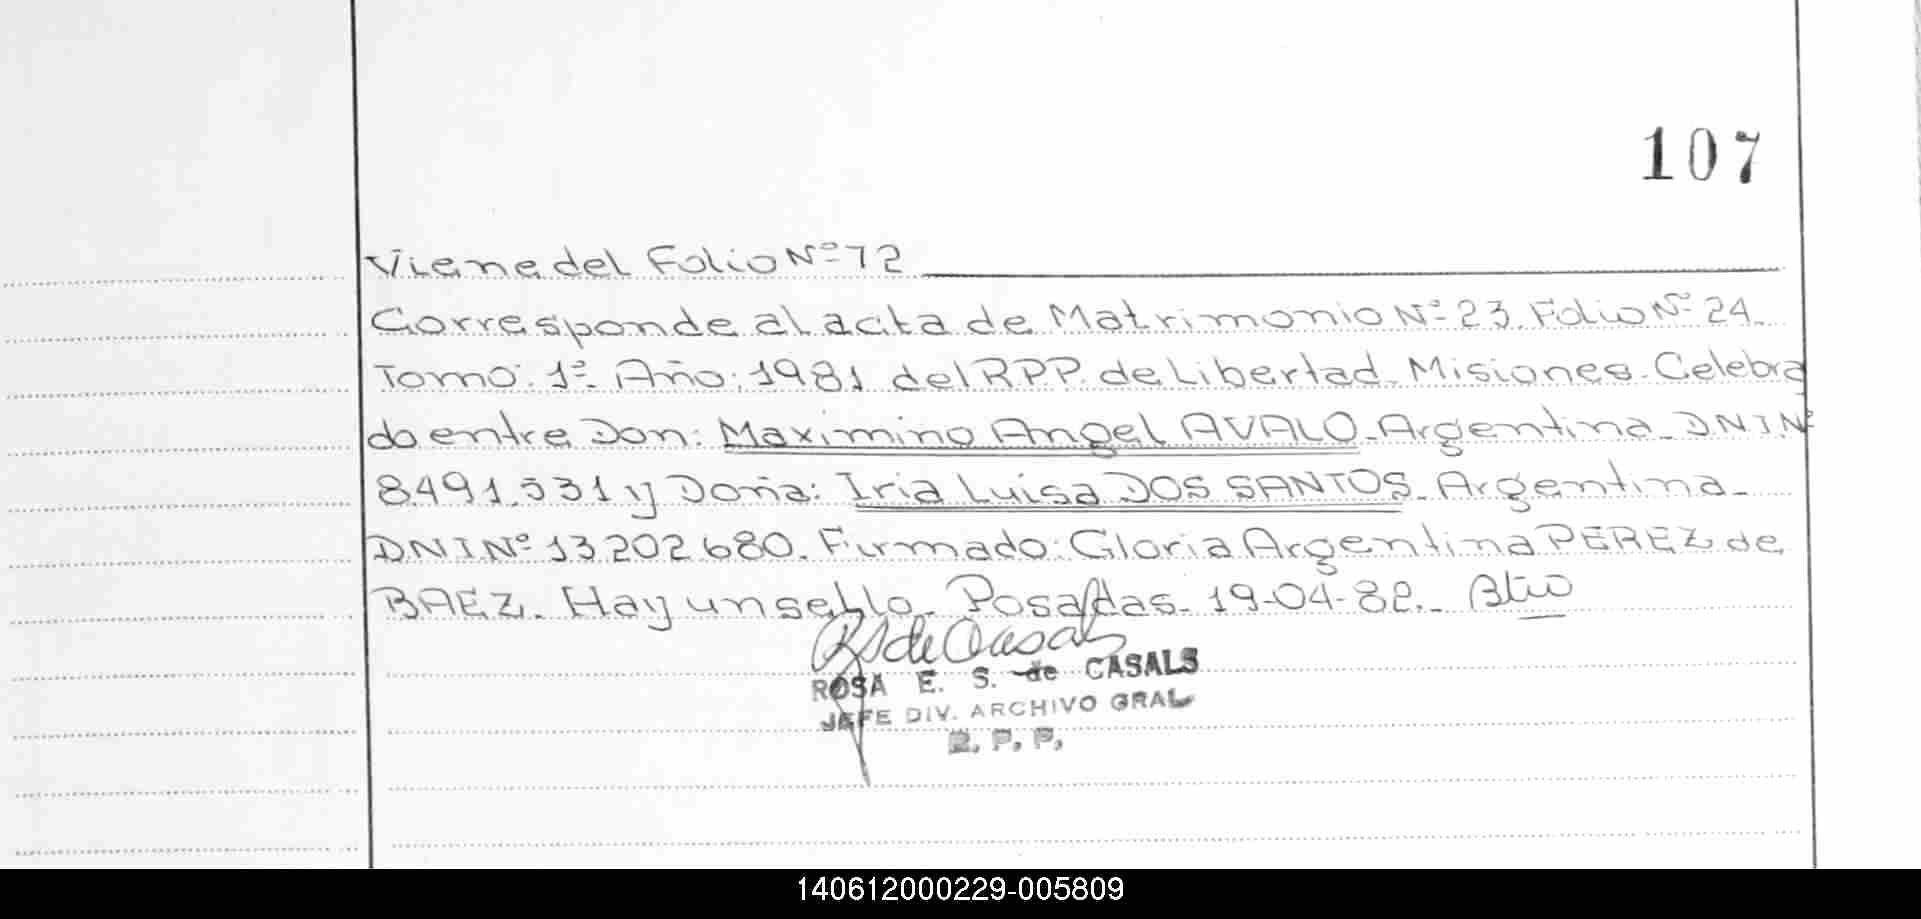 107
Viene del Folio Nº 72
Corresponde al acta de Matrimonio Nº 23. Folio Nº 24.
Tomo: 1º. Año: 1981 del R.P.P. de Libertad. Misiones. Celebra
do entre Don: Maximino Angel AVALO. Argentina. D.N.I.Nº
8.491.531 y Doña: Iria Luisa DOS SANTOS. Argentina.
D.N.I.Nº 13.202.680. Firmado: Gloria Argentina PEREZ de
BAEZ. Hay un sello. Posadas. 19-04-82.
RS de Casals
ROSA E. S. de CASALS
JEFE DIV. ARCHIVO GRAL
R. P. P.
140612000229-005809